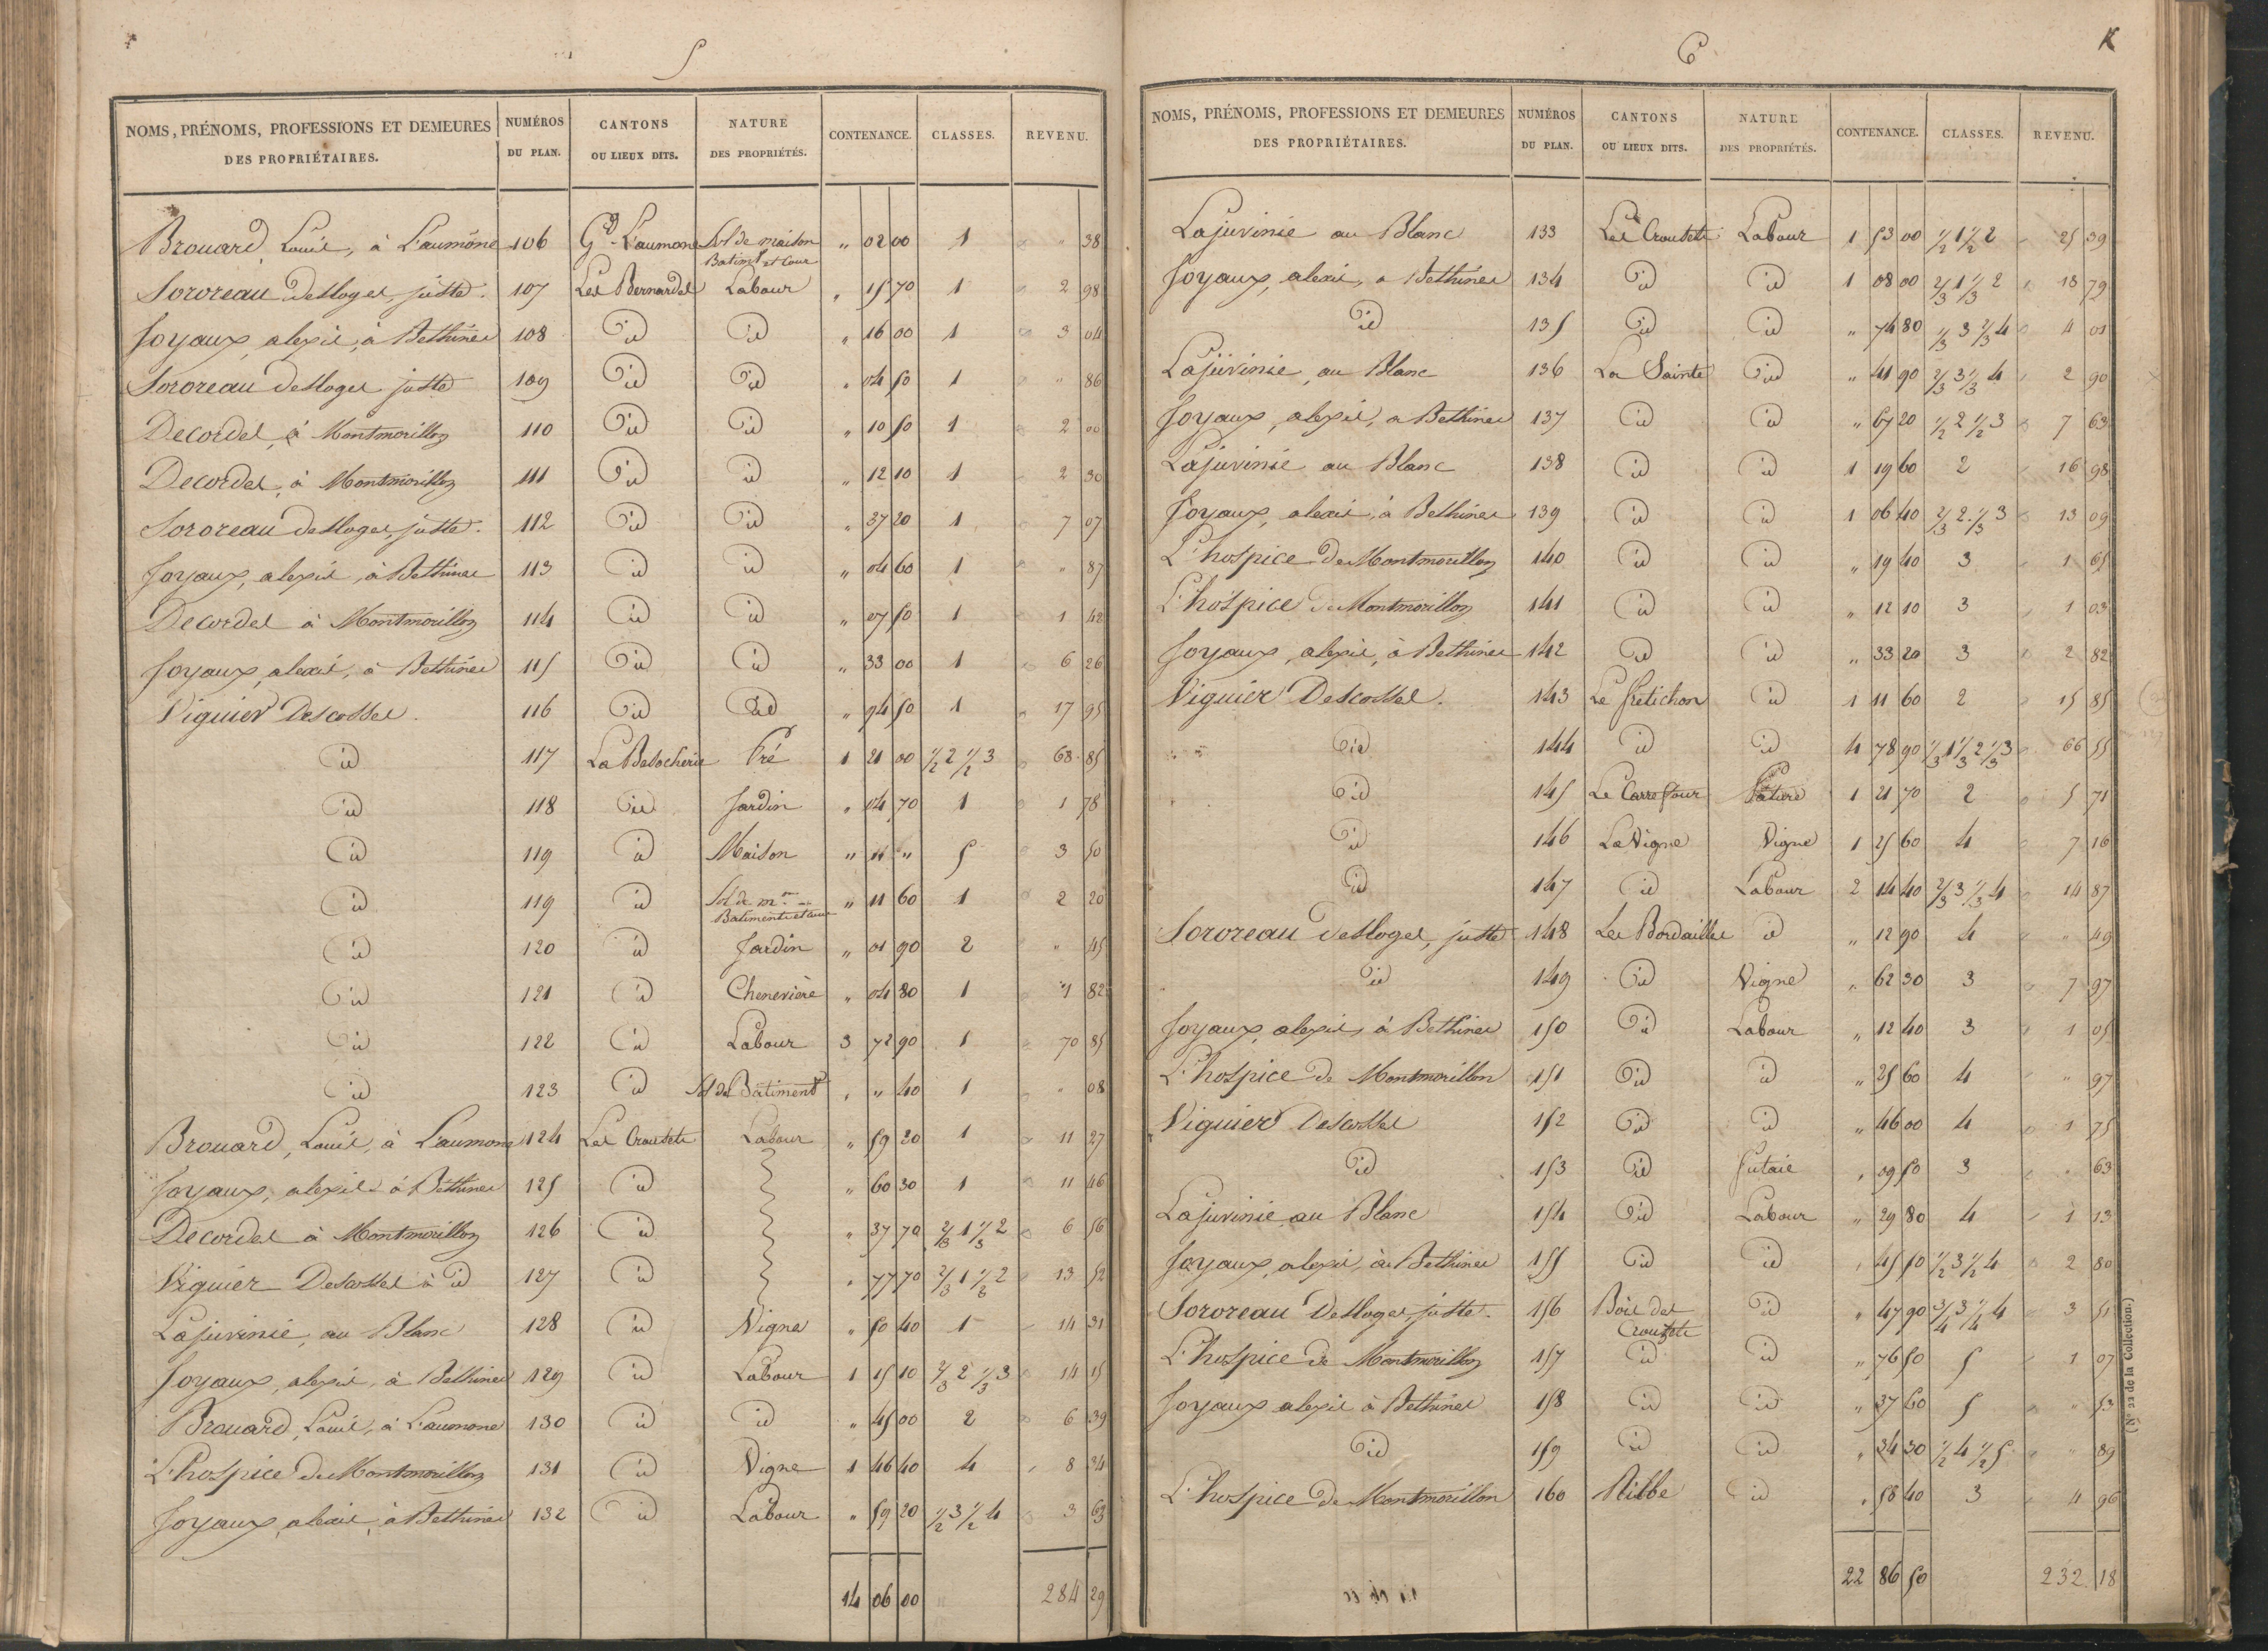 5
NOMS, PRÉNOMS, PROFESSIONS ET DEMEURES DES PROPRIÉTAIRES. NUMÉROS DU PLAN. CANTONS OU LIEUX DITS. NATURE DES PROPRIÉTÉS. CONTENANCE. CLASSES. REVENU.
Brouard, Louis, à L'aumône 106 Gd L'aumone Sol de maison Batimt et Cour " 02 00 1 " 38
Sororeau desloges, juste. 107 Les Bernardes Labour " 15 70 1 2 98
Joyaux, alexis, à Bethines 108 id id " 16 00 1 3 04
Sororeau desloges juste 109 id id " 04 50 1 " 86
Decordes, à Montmorillon 110 id id " 10 50 1 2 00
Decordes, à Montmorillon 111 id id " 12 10 1 2 30
Sororeau desloges, juste. 112 id id " 37 20 1 7 07
Joyaux, alexis, à Bethines 113 id id " 04 60 1 " 87
Decordes à Montmorillon 114 id id " 07 50 1 1 42
Joyaux, alexis, à Bethines 115 id id " 33 00 1 6 26
Viguier Descosses. 116 id id " 94 50 1 17 95
id 117 La Belocherie Pré 1 21 00 1/2 2 1/2 3 68 85
id 118 id Jardin " 04 70 1 1 78
id 119 id Maison " " " 5 3 50
id 119 id Sol de mon Batiments et Cour " 11 60 1 2 20
id 120 id Jardin " 01 90 2 " 45
id 121 id Chenevière " 04 80 1 1 82
id 122 id Labour 3 72 90 1 70 85
id 123 id Sol de Bâtiment " " 40 1 " 08
Brouard, Louis, à L'aumone 124 Les Croutets Labour " 59 30 1 11 27
Joyaux, alexis à Bethines 125 id " 60 30 1 11 46
Decordes à Montmorillon 126 id " 37 70 2/3 1 1/3 2 6 56
Viguier Descosses à id 127 id " 77 70 2/3 1 1/3 2 13 52
Lajuvinie, au Blanc 128 id Vigne " 50 40 1 14 31
Joyaux, alexis, à Bethines 129 id Labour 1 15 10 2/3 2 1/3 3 14 15
Brouard, Louis, à L'aumone 130 id id " 45 00 2 6 39
L'hospice de Montmorillon 131 id Vigne 1 46 40 4 8 34
Joyaux, alexis, à Bethines 132 id Labour " 59 20 1/2 3 1/2 4 3 63
14 06 00 284 29
6
NOMS, PRÉNOMS, PROFESSIONS ET DEMEURES DES PROPRIÉTAIRES. NUMÉROS DU PLAN. CANTONS OU LIEUX DITS. NATURE DES PROPRIÉTÉS. CONTENANCE. CLASSES. REVENU.
Lajuvinie au Blanc 133 Les Croutets Labour 1 53 00 1/2 1 1/2 2 25 39
Joyaux, alexis, a Bethines 134 id id 1 08 00 2/3 1 1/3 2 18 79
id 135 id id " 74 80 1/3 3 2/3 4 4 01
Lajuvinie, au Blanc 136 La Sainte id " 41 90 2/3 3 1/3 4 2 90
Joyaux, alexis, a Bethines 137 id id " 67 20 1/2 2 1/2 3 7 63
Lajuvinie au Blanc 138 id id 1 19 60 2 16 98
Joyaux, alexis, à Bethines 139 id id 1 06 40 2/3 2. 1/3 3 13 09
L'hospice de Montmorillon 140 id id " 19 40 3 1 65
L'hospice de Montmorillon 141 id id " 12 10 3 1 03
Joyaux, alexis, à Bethines 142 id id " 33 20 3 2 82
Viguier Descosses. 143 Le fretichon id 1 11 60 2 15 85
id 144 id id 4 78 90 1/3 1 1/3 2 1/3 3 66 55
id 145 Le Carrefour Pature 1 21 70 2 5 71
id 146 La Vigne Vigne 1 25 60 4 7 16
id 147 id Labour 2 14 40 2/3 3 1/3 4 14 87
Sororeau desloges, juste 148 Les Bordailles id " 12 90 4 " 49
id 149 id Vigne " 62 30 3 7 97
Joyaux, alexis, à Bethines 150 id Labour " 12 40 3 1 05
L'hospice de Montmorillon 151 id id " 25 60 4 " 97
Viguier Descosses 152 id id " 46 00 4 1 75
id 153 id futaie " 09 50 3 " 63
Lajuvinie, au Blanc 154 id Labour " 29 80 4 1 13
Joyaux, alexis, à Bethines 155 id id " 45 50 1/2 3 1/2 4 2 80
Sororeau Desloges, juste. 156 Bois des Croutets id " 47 90 3/4 3 1/4 4 3 51
L'hospice de Montmorillon 157 id id " 76 50 5 1 07
Joyaux alexis à Bethines 158 id id " 37 60 5 " 53
id 159 id id " 34 30 1/2 4 1/2 5 " 89
L'hospice de Montmorillon 160 Ribbe id " 58 40 3 4 96
22 86 50 232 18
(No 22 de la Collection.)